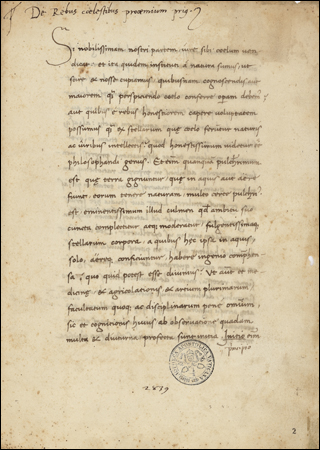 De Rebus coelestibus prooemium prim.
Si nobilissimam nostri partem iure sibi coelum uen
dicat et ita quidem instituti a natura sumus, ut
scire et nosse cupiamus quibusnam cognoscendis aut
maiorem quam perspiciendo coelo conferre operam debemus
aut quibus e rebus honestiorem capere uoluptatem
possumus quam ex stellarum quae coelo feruntur naturis
ac uiribus intellectis quod honestissimum uidetur
philosophandi genus. Etenim quanquam pulcherrimum
est quae terra gignuntur quae in aquis aut aere
fiunt eorum tenere naturam multo certe pulcherrimum
est eminentissimum illud culmen quod ambitu suo
cuncta complectitur atque moderatur fulgentissimaque
stellarum corpora a quibus haec ipsa in aquis
solo aereque conficiuntur habere ingenio comprehen
sa quo quid potest esse diuinius? Vt autem
dicinae et agricolationis et artium plurimarum
facultatum quoque ac disciplinarum pene omnium
sic et cognitionis huius ab obseruatione quadam
multa et diuturna profecta sunt initia. Initio enim
principio
2839
2